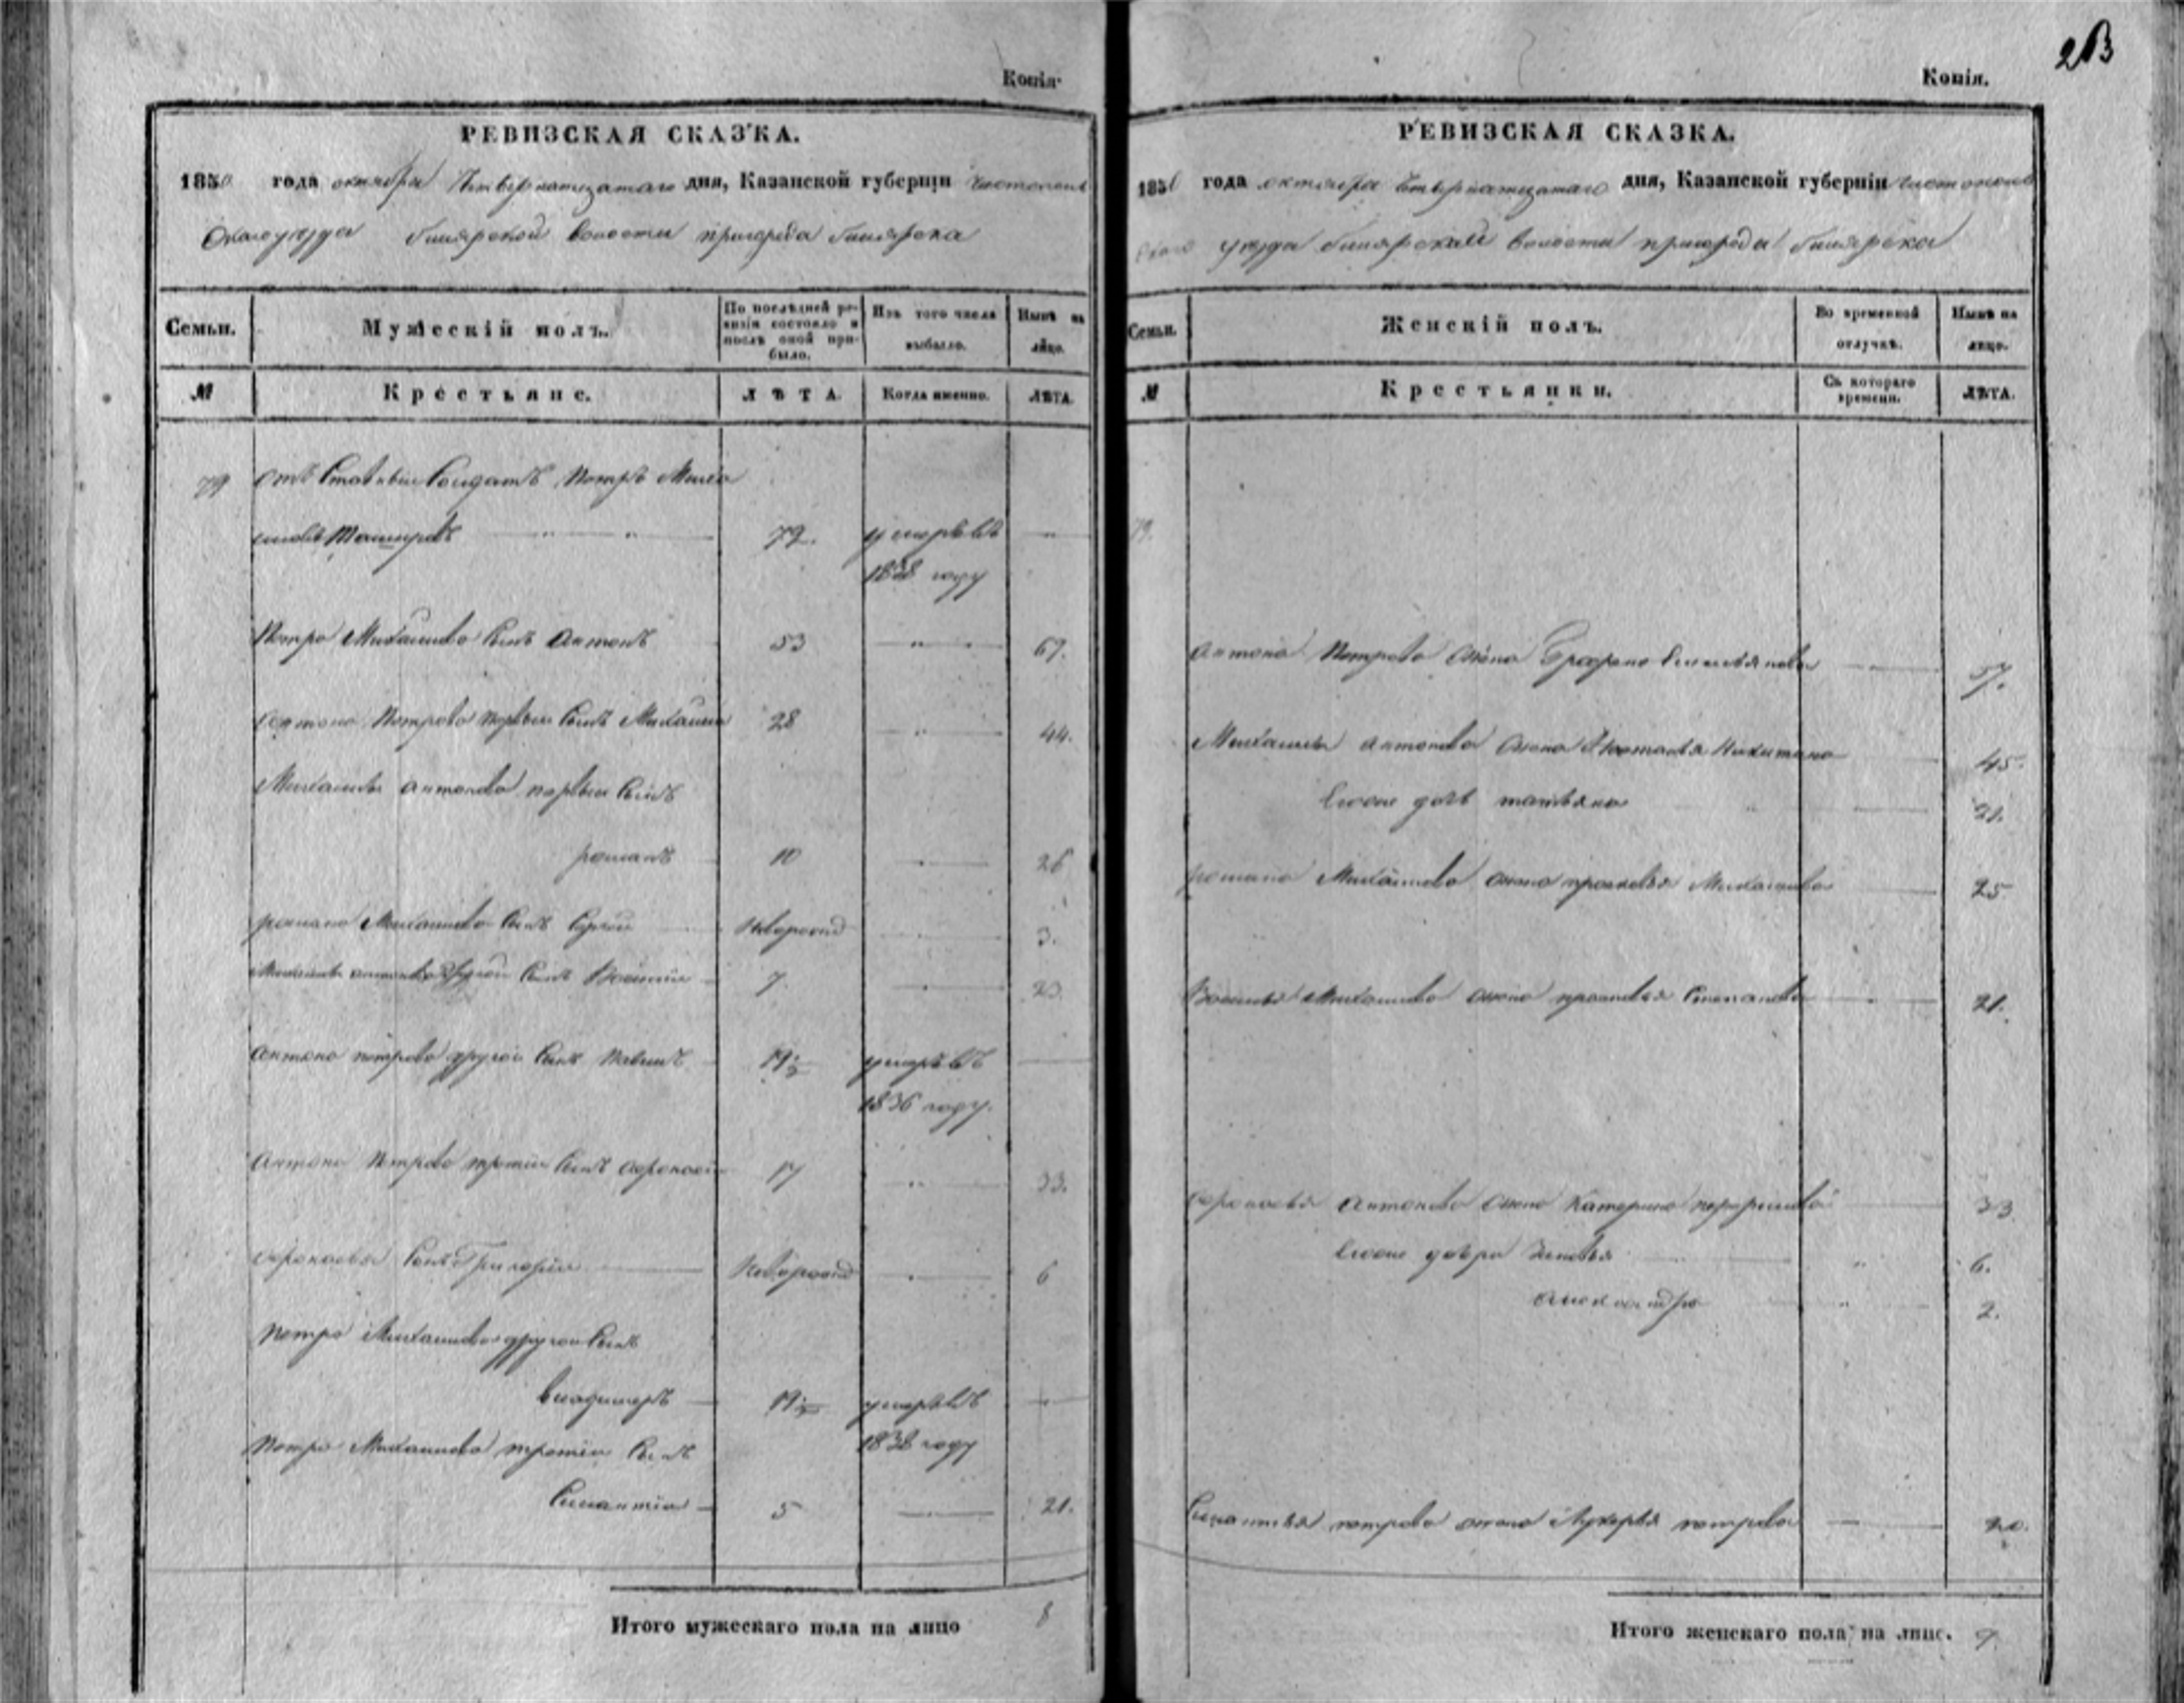 Копія.
РЕВИЗСКАЯ СКАЗКА.
1850 года октября Четвернатцатаго дня, Казанской губерніи Чистополь
скаго уезда билярской волости пригорда билярска
Семьи. Мужескій полъ. По послѣдней ревизіи состояло и послѣ оной прибыло. Изъ того числа выбыло. Нынѣ на лицо.
№ Крестьяне. ЛѢТА. Когда именно. ЛѢТА.
79 Отъ Ставный Солдатъ Петръ Михаи
72. умрѣлъ
1838 году
Петра Михаилова Сынъ Антонъ 53 67.
Антона Петрова первый Сынъ Михаила 28 44.
Михаила антонова первый Сынъ
романъ 10 26
романа Михаилова Сынъ Сергей Новорожд 3.
Михаила антонова другой Сынъ Василий 7 23
Антона петрова другой Сынъ Павилъ 19½ умрѣлъ
1836 году.
Антона Петрова третий Сынъ Афонасий 17 33.
Афонасья Сынъ Григорий Новорожд 6
Петра Михаилова другой Сынъ
владимеръ 19½ умрѣлъ
Петра Михаилова третий Сынъ 1838 году
5 21.
Итого мужескаго пола на лицо 8
213
Копія.
РЕВИЗСКАЯ СКАЗКА.
1850 года октября Четвернатцатаго дня, Казанской губерніи Чистополь
скаго уезда билярской волости пригорда билярска
Семьи. Женскій полъ. Во временной отлучкѣ. Нынѣ на лицо.
№ Крестьянки. Съ котораго времени. ЛѢТА.
79.
Антона Петрова жена Емельянова 57.
Михаила антонова жена Никитина 45.
Евоже дочь татьяна 21.
романа Михаилова жена прасковья Михаилова 25
Василья Михаилова жена прасковья Степанова 21.
Афонасья Антонова жена Катерина 33
Евоже дочери Зиновья 6.
Александра 2.
петрова жена Лукерья петрова 20.
Итого женскаго пола на лице. 9